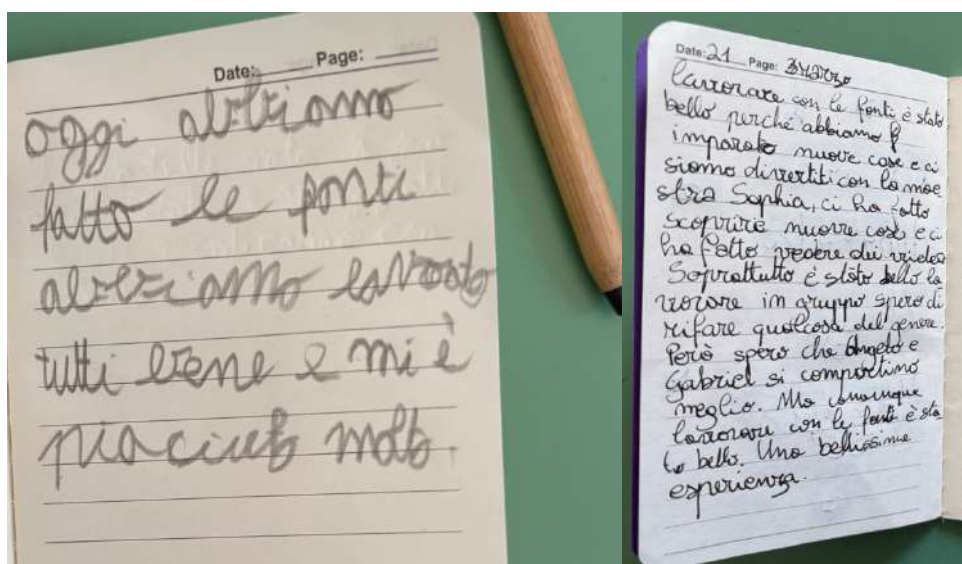 Date: Page:
oggi abbiamo
fatto le fonti
abbiamo lavorato
tutti bene e mi è
piaciuto molto.
Date: 21 Page: Marzo
lavorare con le fonti è stato
bello perché abbiamo
imparato nuove cose e ci
siamo divertiti con la mae
stra Sophia, ci ha fatto
scoprire nuove cose e ci
ha fatto vedere dei video.
Soprattutto è stato bello la
vorare in gruppo spero di
rifare qualcosa del genere.
Però spero che Angelo e
Gabriel si comportino
meglio. Ma comunque
lavorare con le fonti è sta
to bello. Una bellissima
esperienza.